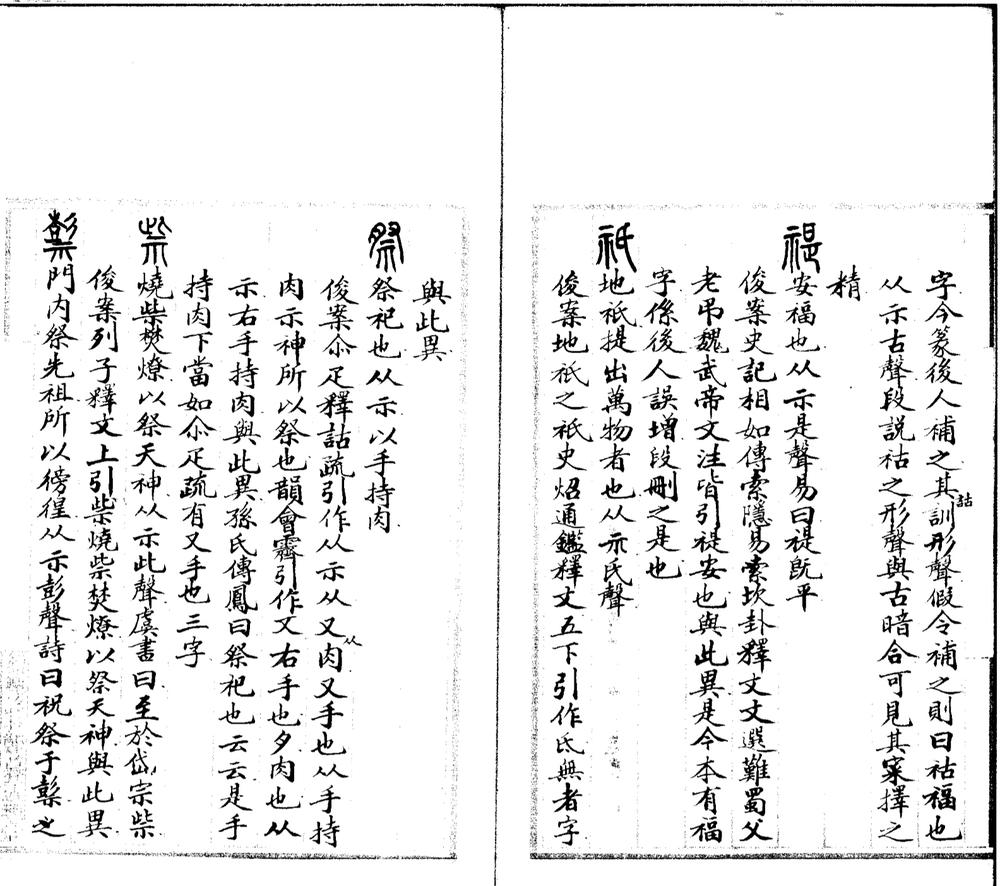 字今篆後人補之其訓詁形聲假令補之則曰祜福也
从示古聲段說祜之形聲與古暗合可見其寀擇之
精
禔安福也从示是聲易曰禔旣平
俊案史記相如傳索隱易索坎卦釋文文選難蜀父
老弔魏武帝文注皆引禔安也與此異是今本有福
字係後人誤增段刪之是也
祇地祇提出萬物者也从示氏聲
俊案地祇之祇史炤通鑑釋文五下引作氐無者字
與此異
祭祭祀也从示以手持肉
俊案尒疋釋詁疏引作从示从又从肉又手也从手持
肉示神所以祭也韻會霽引作又右手也夕肉也从
示右手持肉與此異孫氏傳鳳曰祭祀也云云是手
持肉下當如尒疋疏有又手也三字
祡燒柴燓燎以祭天神从示此聲虞書曰至於岱宗祡
俊案列子釋文上引祡燒柴焚燎以祭天神與此異
門內祭先祖所以徬徨从示彭聲詩曰祝祭于之